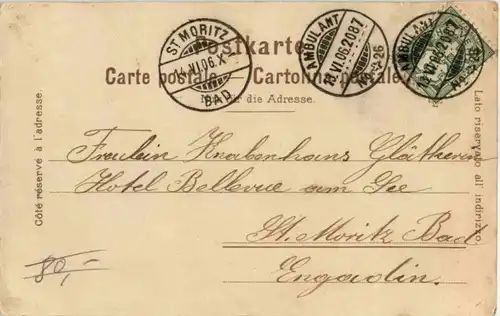 Postkarte
Carte postale. Cartolina postale.
Nur für die Adresse.
ST. MORITZ
14.VI.06.X
BAD
AMBULANT
13.VI.06.2087
AMBULANT
13.VI.06.2087
Côté réservé à l'adresse.
Lato riservato all' indirizzo.
Fräulein Knabenhans Glätterin
Hotel Bellevue am See
St. Moritz Bad
Engadin.
80,-